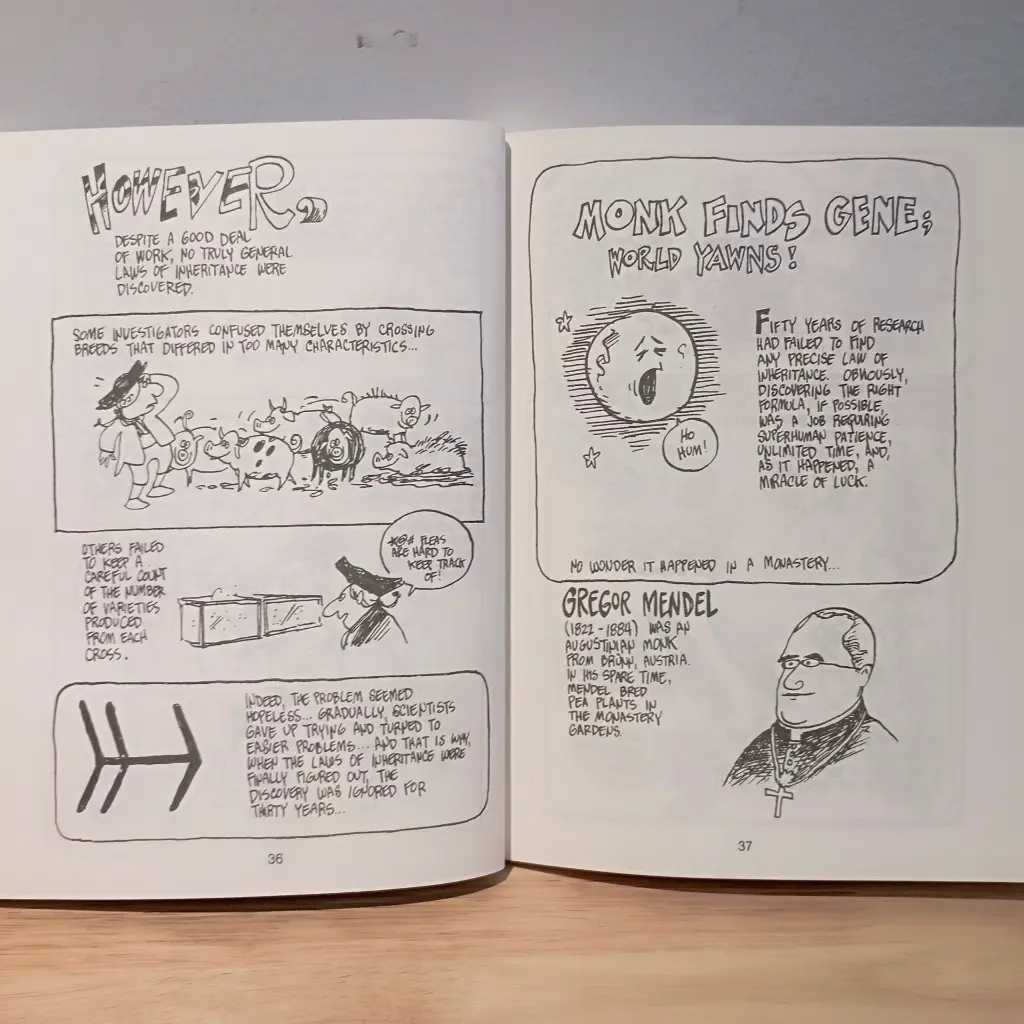 HOWEVER,
DESPITE A GOOD DEAL
OF WORK, NO TRULY GENERAL
LAWS OF INHERITANCE WERE
DISCOVERED.
SOME INVESTIGATORS CONFUSED THEMSELVES BY CROSSING
BREEDS THAT DIFFERED IN TOO MANY CHARACTERISTICS...
OTHERS FAILED
TO KEEP A
CAREFUL COUNT
OF THE NUMBER
OF VARIETIES
PRODUCED
FROM EACH
CROSS.
*@# FLEAS
ARE HARD TO
KEEP TRACK
OF!
INDEED, THE PROBLEM SEEMED
HOPELESS... GRADUALLY, SCIENTISTS
GAVE UP TRYING AND TURNED TO
EASIER PROBLEMS... AND THAT IS WHY,
WHEN THE LAWS OF INHERITANCE WERE
FINALLY FIGURED OUT, THE
DISCOVERY WAS IGNORED FOR
THIRTY YEARS...
36
MONK FINDS GENE;
WORLD YAWNS!
FIFTY YEARS OF RESEARCH
HAD FAILED TO FIND
ANY PRECISE LAW OF
INHERITANCE. OBVIOUSLY,
DISCOVERING THE RIGHT
FORMULA, IF POSSIBLE,
WAS A JOB REQUIRING
SUPERHUMAN PATIENCE,
UNLIMITED TIME, AND,
AS IT HAPPENED, A
MIRACLE OF LUCK.
HO
HUM!
NO WONDER IT HAPPENED IN A MONASTERY...
GREGOR MENDEL
(1822-1884) WAS AN
AUGUSTINIAN MONK
FROM BRÜNN, AUSTRIA.
IN HIS SPARE TIME,
MENDEL BRED
PEA PLANTS IN
THE MONASTERY
GARDENS.
37